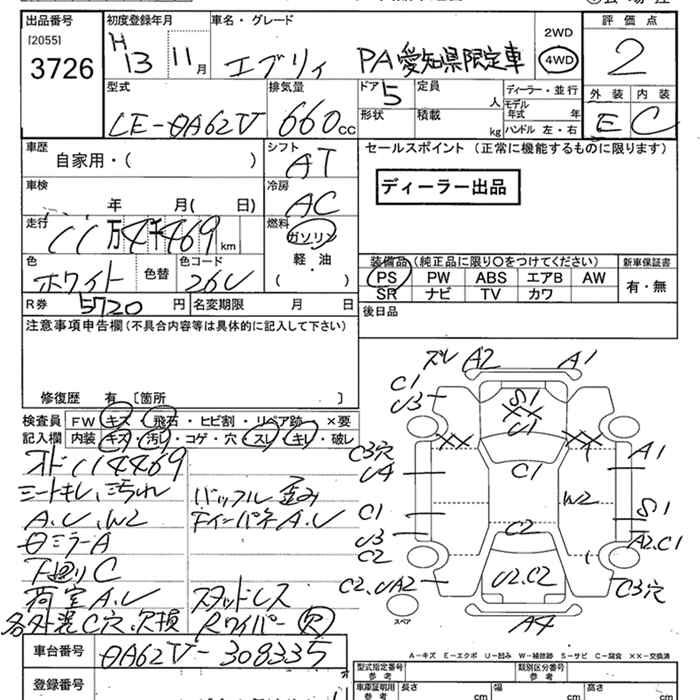 出品番号
[2055]
3726
初度登録年月
H13 11月
車名・グレード
エブリィ PA 愛知県限定車
2WD
4WD
評価点
2
型式
LE-DA62V
排気量
660cc
ドア
5
定員
人
ディーラー・並行
形状
積載
kg
モデル年式 年
ハンドル 左・右
外装
E
内装
C
車歴
自家用・( )
シフト
AT
車検
年 月( 日)
冷房
AC
走行
11万4千469km
燃料
ガソリン
軽・油
( )
色
ホワイト
色替
色コード
26U
R券
5720円
名変期限 月 日
セールスポイント (正常に機能するものに限ります)
ディーラー出品
装備品(純正品に限り○をつけてください)
新車保証書
PS PW ABS エアB AW
SR ナビ TV カワ
有・無
後日品
注意事項申告欄(不具合内容等は具体的に記入して下さい)
修復歴 有 〔箇所 〕
検査員
記入欄
FW キズ・飛石・ヒビ割・リペア跡・×要
内装 キズ・汚れ・コゲ・穴・スレ・キレ・破レ
オド114469
シートキレ、汚れ
バックル歪み
A.U、W2
F、インパネA.U
ミラーA
下廻りC
荷室A.U
スタッドレス
各外装C穴、欠損
Rワイパー欠
ズレ A2
A1
C1
U3
S1
XX
U1
C3穴
U4
XX
C1
A1
C1
W2
S1
U3
C2
C2
A2.C1
C2、UA2
U2.C2
C3穴
スペア
A4
A-キズ E-エクボ U-凹み W-補修跡 S-サビ C-腐食 XX-交換済
車台番号
DA62V-308335
登録番号
型式指定番号
参考
類別区分番号
参考
車庫証明用
参考
長さ cm
幅 cm
高さ cm